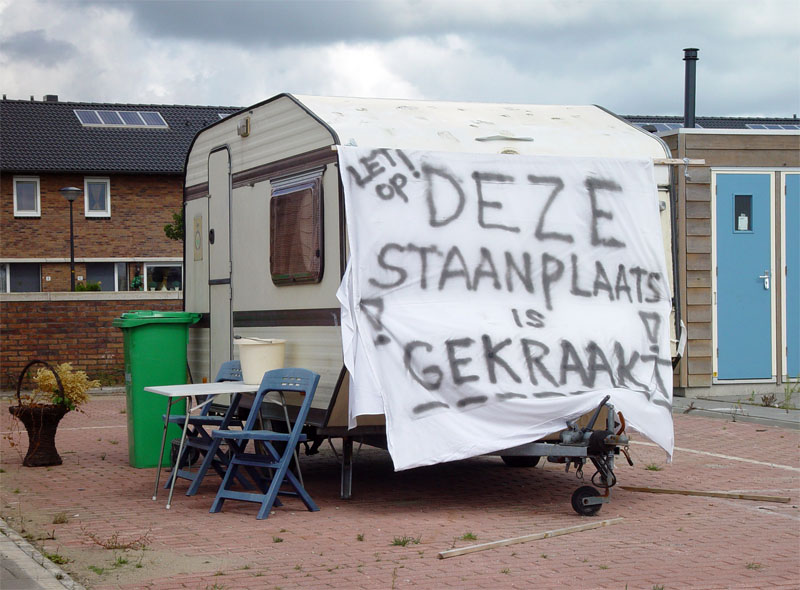 LET!
OP
DEZE
STAANPLAATS
! IS !
GEKRAAKT